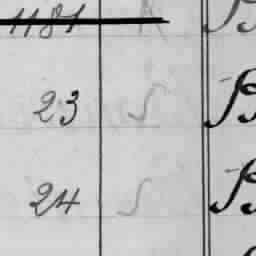 1181
23 S B
24 S B